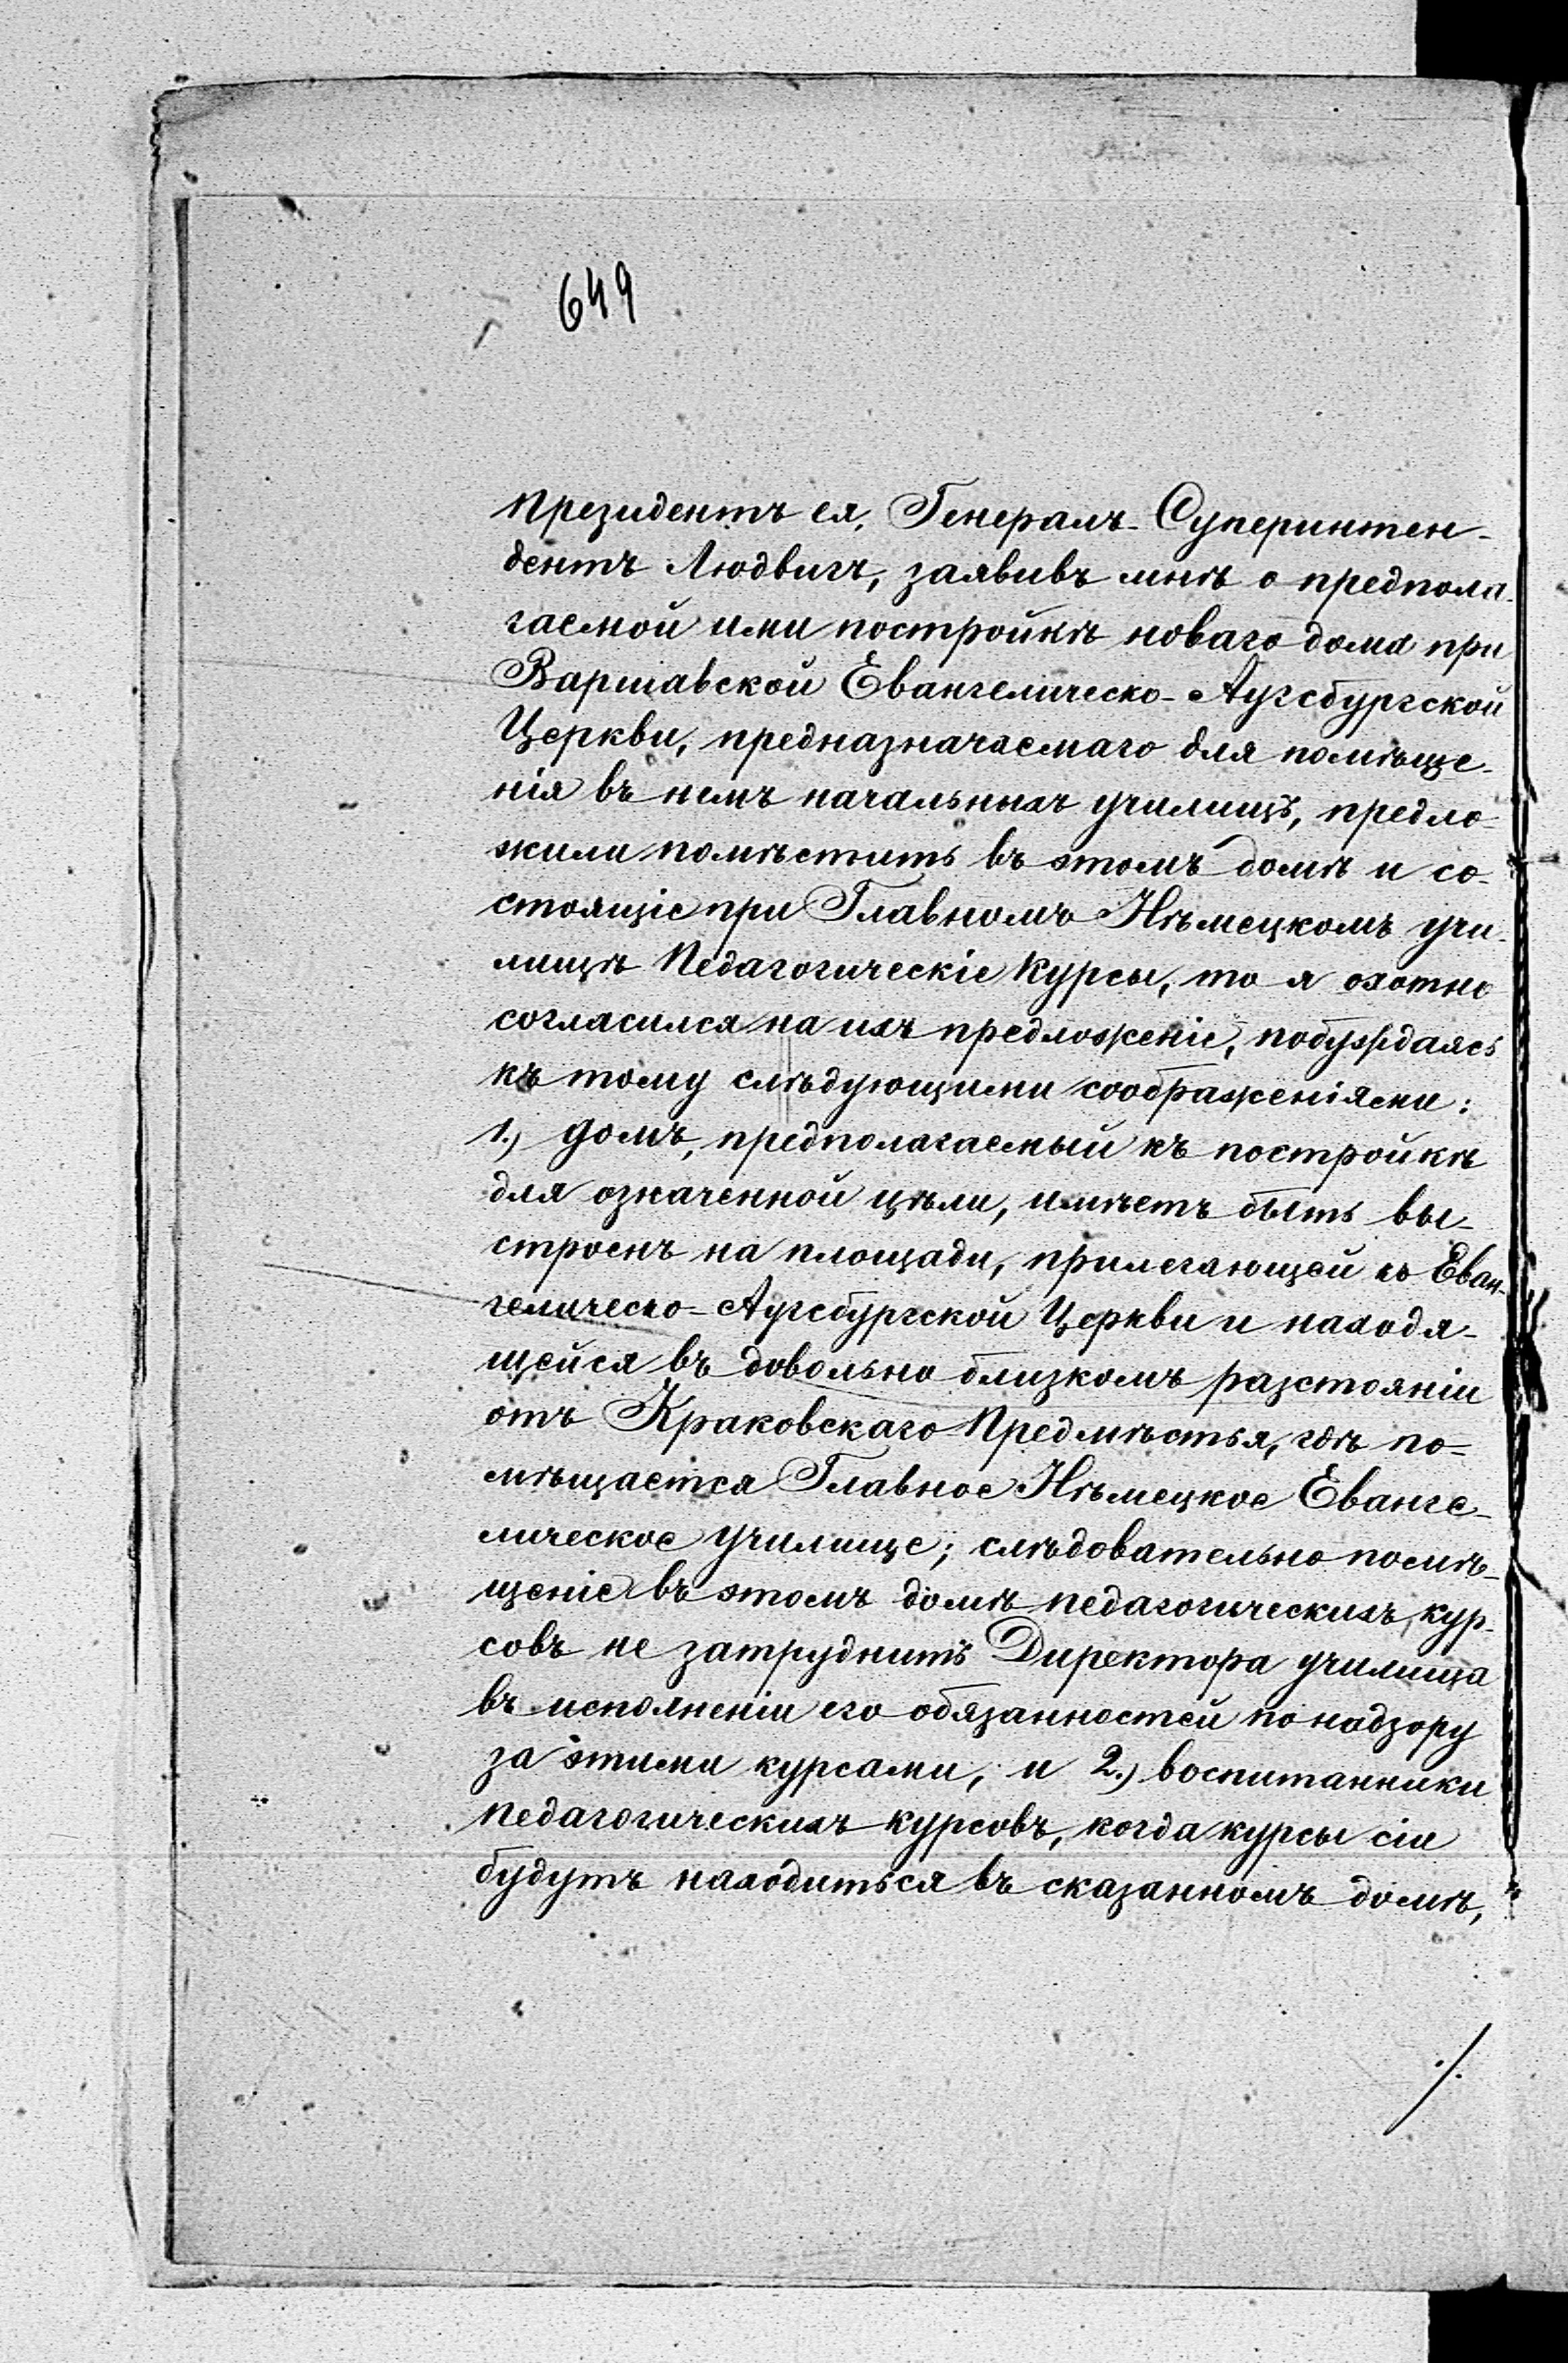 649
Президентъ ея, Генералъ-Суперинтен-
дентъ Людвигъ, заявивъ мнѣ о предпола-
гаемой ими постройкѣ новаго дома при
Варшавской Евангелическо-Аугсбургской
Церкви, предназначаемаго для помѣще-
нія въ немъ начальныхъ училищъ, предло-
жили помѣстить въ этомъ домѣ и со-
стоящіе при Главномъ Нѣмецкомъ учи-
лищѣ Педагогическіе Курсы, то я охотно
согласился на ихъ предложеніе, побуждаясь
къ тому слѣдующими соображеніями:
1.) Домъ, предполагаемый къ постройкѣ
для означенной цѣли, имѣетъ быть вы-
строенъ на площади, прилегающей къ Еван-
гелическо-Аугсбургской Церкви и находя-
щейся въ довольно близкомъ разстояніи
отъ Краковскаго Предмѣстья, гдѣ по-
мѣщается Главное Нѣмецкое Еванге-
лическое училище; слѣдовательно помѣ-
щеніе въ этомъ домѣ педагогическихъ кур-
совъ не затруднитъ Директора училища
въ исполненіи его обязанностей по надзору
за этими курсами, и 2.) воспитанники
педагогическихъ курсовъ, когда курсы сіи
будутъ находиться въ сказанномъ домѣ,
./.